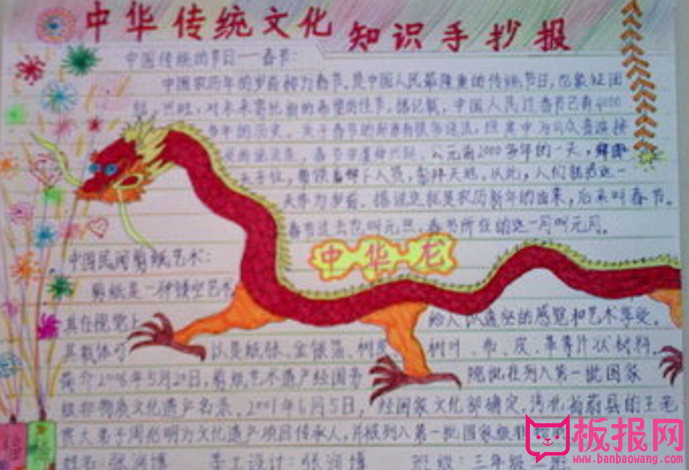 中华传统文化 知识手抄报
中国传统的节日——春节:
中国农历年的岁首称为春节,是中国人民最隆重的传统节日,也象征团
兴旺,对未来寄托新的希望的佳节。据记载,中国人民过春节已有4000
多年的历史。关于春节的
公元前2000多年的一天,舜即
天子位,带领着部下人员,祭拜天地。从此,人们就把这一
天当为岁首。据说这就是农历新年的由来,后来叫春节。
春节过去也叫元旦。春节所在的这一月叫元月。
中华龙
中国民间剪纸艺术:
剪纸是一种镂空艺术,
其在视觉上 给人以透空的感觉和艺术享受。
其载体可以是纸张、金银箔、树皮、树叶、布、皮、革等片状材料。
2006年5月20日,剪纸艺术遗产经国务院批准列入第一批国家
级非物质文化遗产名录。2001年6月5日,经国家文化部确定,河北省蔚县的王老
赏大弟子周兆明为文化遗产项目传承人,并被列入第一批国家级
班级:三年级
板报网
www.banbaowang.com